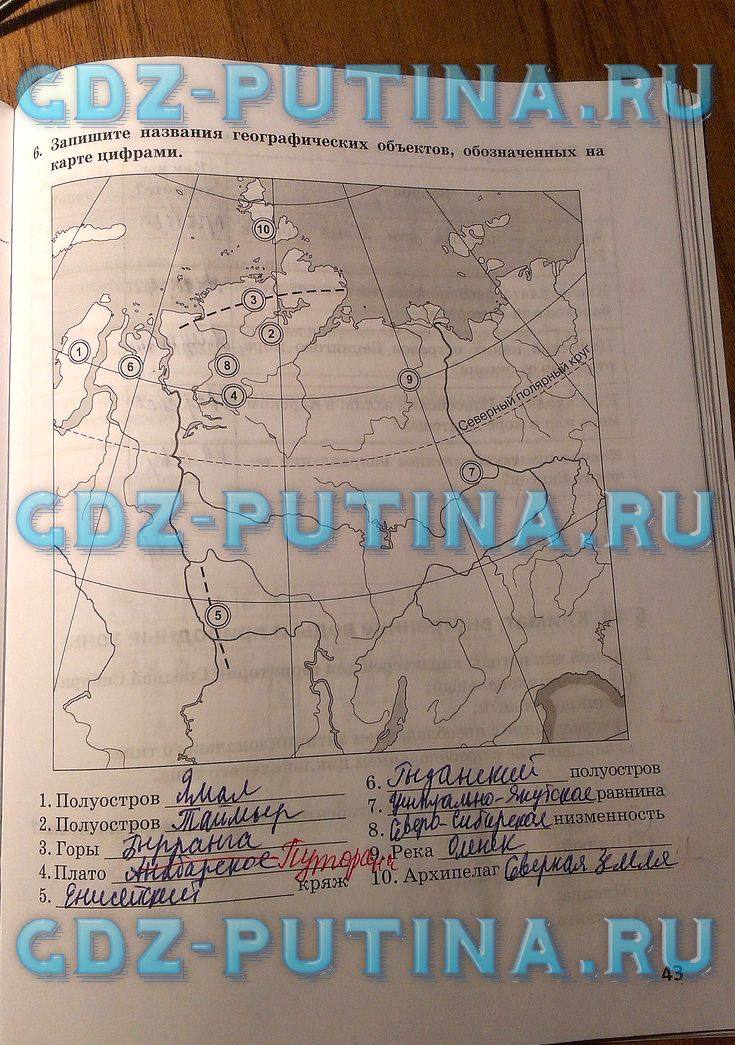 GDZ-PUTINA.RU
6. Запишите названия географических объектов, обозначенных на
карте цифрами.
10
3
2
1
6
8
4
9
Северный полярный круг
GDZ-PUTINA.RU
7
5
1. Полуостров Ямал
2. Полуостров Таймыр
3. Горы Бырранга
4. Плато Анабарское Путорана
5. Енисейский кряж
6. Гыданский полуостров
7. Центрально-Якутское равнина
8. Северо-Сибирская низменность
9. Река Оленек
10. Архипелаг Северная Земля
GDZ-PUTINA.RU
43